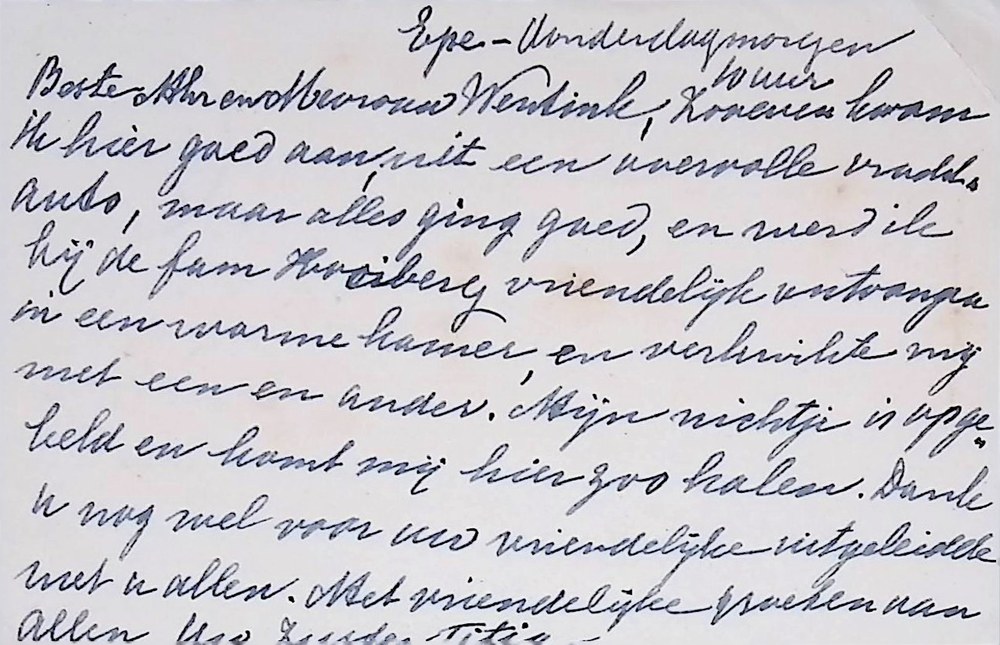 Epe - Donderdagmorgen
10 uur
Beste Mhr en Mevrouw Wentink, Zooeven kwam
ik hier goed aan, uit een overvolle vracht-
auto, maar alles ging goed, en werd ik
bij de fam Hooiberg vriendelijk ontvangen
in een warme kamer, en verkwikte mij
met een en ander. Mijn nichtje is opge-
beld en komt mij hier zoo halen. Dank
u nog wel voor uw vriendelijke uitgeleidde
met u allen. Met vriendelijke groeten aan
allen Uw Zuster